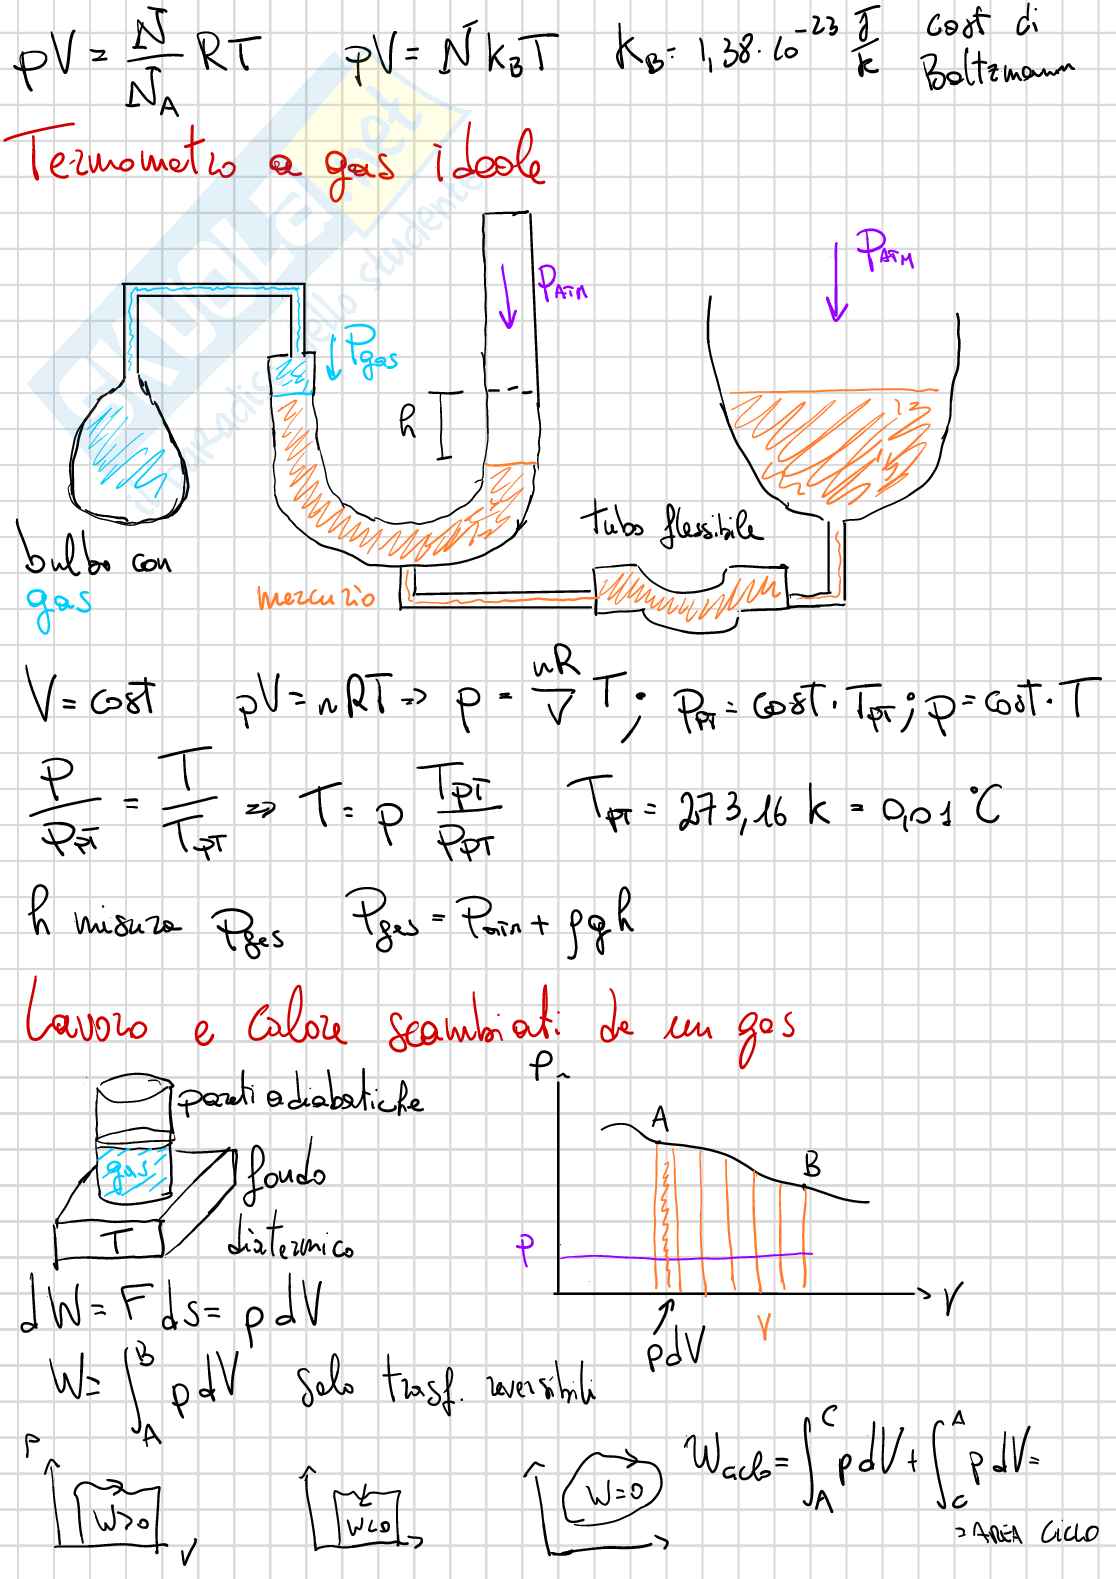 pV = N/N_A RT    pV = N k_B T    k_B = 1,38·10^-23 J/k    cost di Boltzmann
Termometro a gas ideale
SKUOLA.net
P_ATM
P_ATM
P_gas
h
tubo flessibile
bulbo con gas
mercurio
V = cost    pV = nRT → p = nR/V T ; P_PT = cost · T_PT ; p = cost · T
P/P_PT = T/T_PT ⇒ T = p T_PT/P_PT    T_PT = 273,16 k = 0,01 °C
h misura P_gas    P_gas = P_atm + ρgh
Lavoro e calore scambiati da un gas
pareti adiabatiche
gas
fondo diatermico
T
P
A
B
P
V
V
pdV
dW = F ds = p dV
W = ∫_A^B p dV    solo trasf. reversibili
P
W>0
V
W<0
W=0
W_ciclo = ∫_A^C pdV + ∫_C^A pdV =
= AREA CICLO